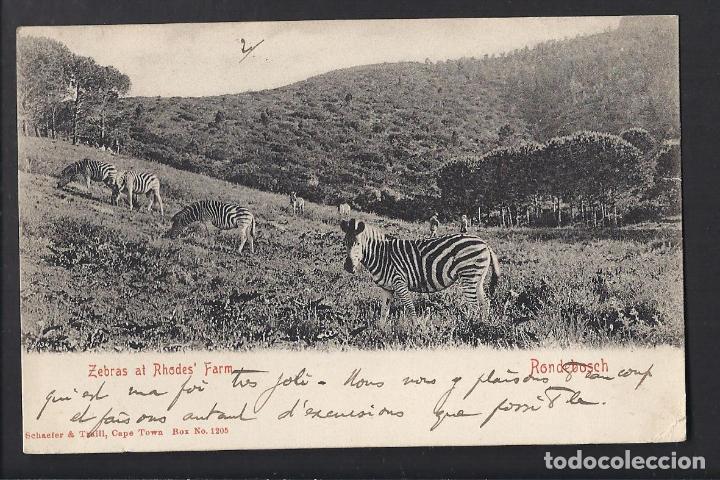 Zebras at Rhodes' Farm
Rondebosch
qui est ma foi très joli - Nous nous y plaisons beaucoup
et faisons autant d'excursions que possible.
Schaefer & Traill, Cape Town Box No. 1205
todocoleccion.net